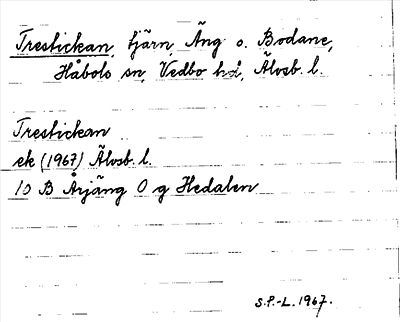 Trestickan, tjärn, Äng o. Bodane,
Håbols sn, Vedbo hd, Älvsb. l.
Trestickan
ek (1967) Älvsb. l.
10 B Årjäng O g Hedalen
S.P.-L. 1967.